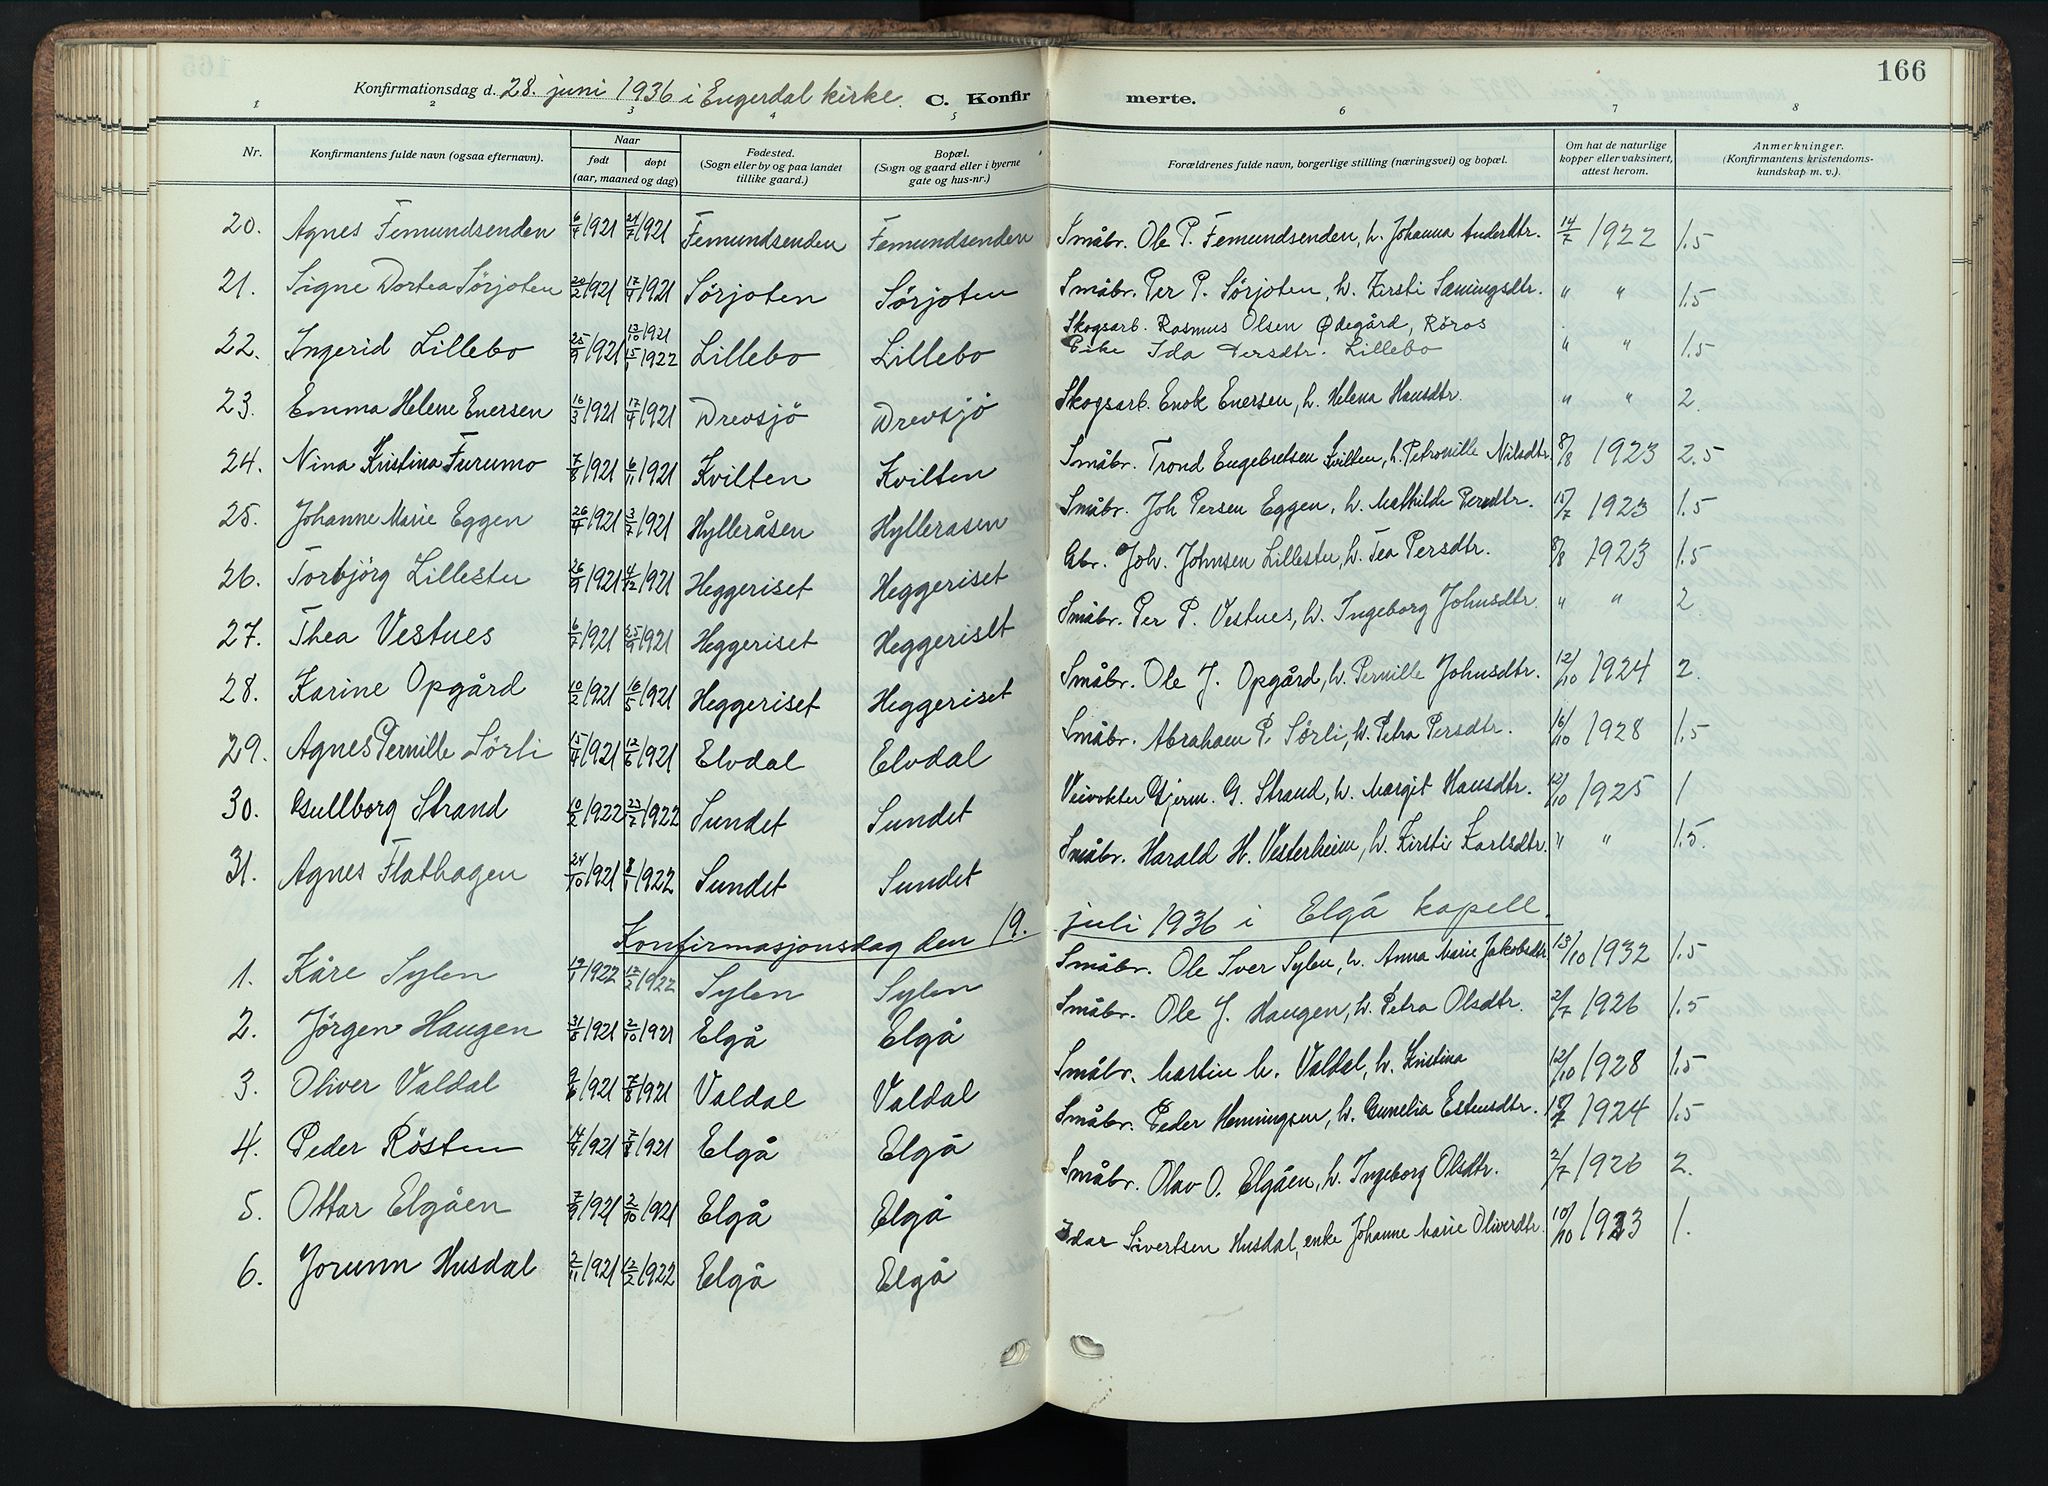 166
Konfirmationsdag d. 28. juni 1936 i Engerdal kirke. C. Konfirmerte.
1 2 3 4 5 6 7 8
Nr. Konfirmantens fulde navn (ogsaa efternavn). Naar født døpt (aar, maaned og dag) Fødested. (Sogn eller by og paa landet tillike gaard.) Bopæl. (Sogn og gaard eller i byerne gate og hus-nr.) Forældrenes fulde navn, borgerlige stilling (næringsvei) og bopæl. Om hat de naturlige kopper eller vaksinert, attest herom. Anmerkninger. (Konfirmantens kristendomskundskap m. v.).
20. Agnes Femundsenden 6/4 1921 24/7 1921 Femundsenden Femundsenden Småbr. Ole P. Femundsenden, h. Johanna Andersdtr. 14/7 1922 1.5
21. Signe Dortea Sørjoten 20/2 1921 17/4 1921 Sørjoten Sørjoten Småbr. Per P. Sørjoten, h. Kirsti Sæmingsdtr. " " 1.5
22. Ingerid Lillebo 25/9 1921 1921 15/1 1922 Lillebo Lillebo Skogsarb. Rasmus Olsen Ødegård, Röros
Pike Ida Persdtr. Lillebo " " 1.5
23. Emma Helene Enersen 16/3 1921 17/4 1921 Drevsjö Drevsjö Skogsarb. Enok Enersen, h. Helena Hansdtr. " " 2.
24. Nina Kristina Furumo 7/8 1921 6/11 1921 Kvilten Kvilten Småbr. Trond Engebretsen Kvilten, h. Petronille Nilsdtr. 8/8 1923 2.5
25. Johanne Marie Eggen 26/4 1921 3/7 1921 Hylleråsen Hylleråsen Småbr. Joh Persen Eggen, h. Mathilde Persdtr. 15/7 1923 1.5
26. Torbjörg Lillestu 26/9 1921 4/12 1921 Heggeriset Heggeriset Gbr. Joh. Johnsen Lillestu, h. Tea Persdtr. 8/8 1923 1.5
27. Thea Vestnes 1921 25/9 1921 Heggeriset Heggeriset Småbr. Per P. Vestnes, h. Ingeborg Johnsdtr. " " 2
28. Karine Opgård 10/2 1921 16/5 1921 Heggeriset Heggeriset Småbr. Ole J. Opgård, h. Pernille Johnsdtr. 12/10 1924 2.
29. Agnes Pernille Sörli 15/4 1921 12/6 1921 Elvdal Elvdal Småbr. Abraham P. Sörli, h. Petra Persdtr. 16/10 1928 1.5
30. Gullborg Strand 10/2 1922 23/7 1922 Sundet Sundet Veivokter Gjerm. G. Strand, h. Margit Hansdtr. 12/10 1925 1
31. Agnes Flathagen 24/10 1921 8/1 1922 Sundet Sundet Småbr. Harald H. Vesterheim, h. Kirsti Karlsdtr. " " 1.5.
Konfirmasjonsdag den 19. juli 1936 i Elgå kapell.
1. Kåre Sylen 1922 1922 Sylen Sylen Småbr. Ole Iver Sylen, h. Anna Marie Jakobsdtr 13/10 1932 1.5
2. Jörgen Haugen 31/8 1921 2/10 1921 Elgå Elgå Småbr. Ole J. Haugen, h. Petra Olsdtr. 2/7 1926 1.5
3. Oliver Valdal 9/6 1921 7/8 1921 Valdal Valdal Småbr. Martin M. Valdal, h. Kristina 12/10 1928 1.5
4. Peder Rösten 1921 7/8 1921 Elgå Elgå Småbr. Peder Henningsen, h. Gunelia Estensdtr. 1924 1.5
5. Ottar Elgåen 7/9 1921 2/10 1921 Elgå Elgå Småbr. Olav O. Elgåen, h. Ingeborg Olsdtr. 2/7 1926 2.
6. Jorunn Husdal 2/11 1921 12/2 1922 Elgå Elgå Idar Sivertsen Husdal, enke Johanne Marie Oliverdtr. 10/10 1933 1.